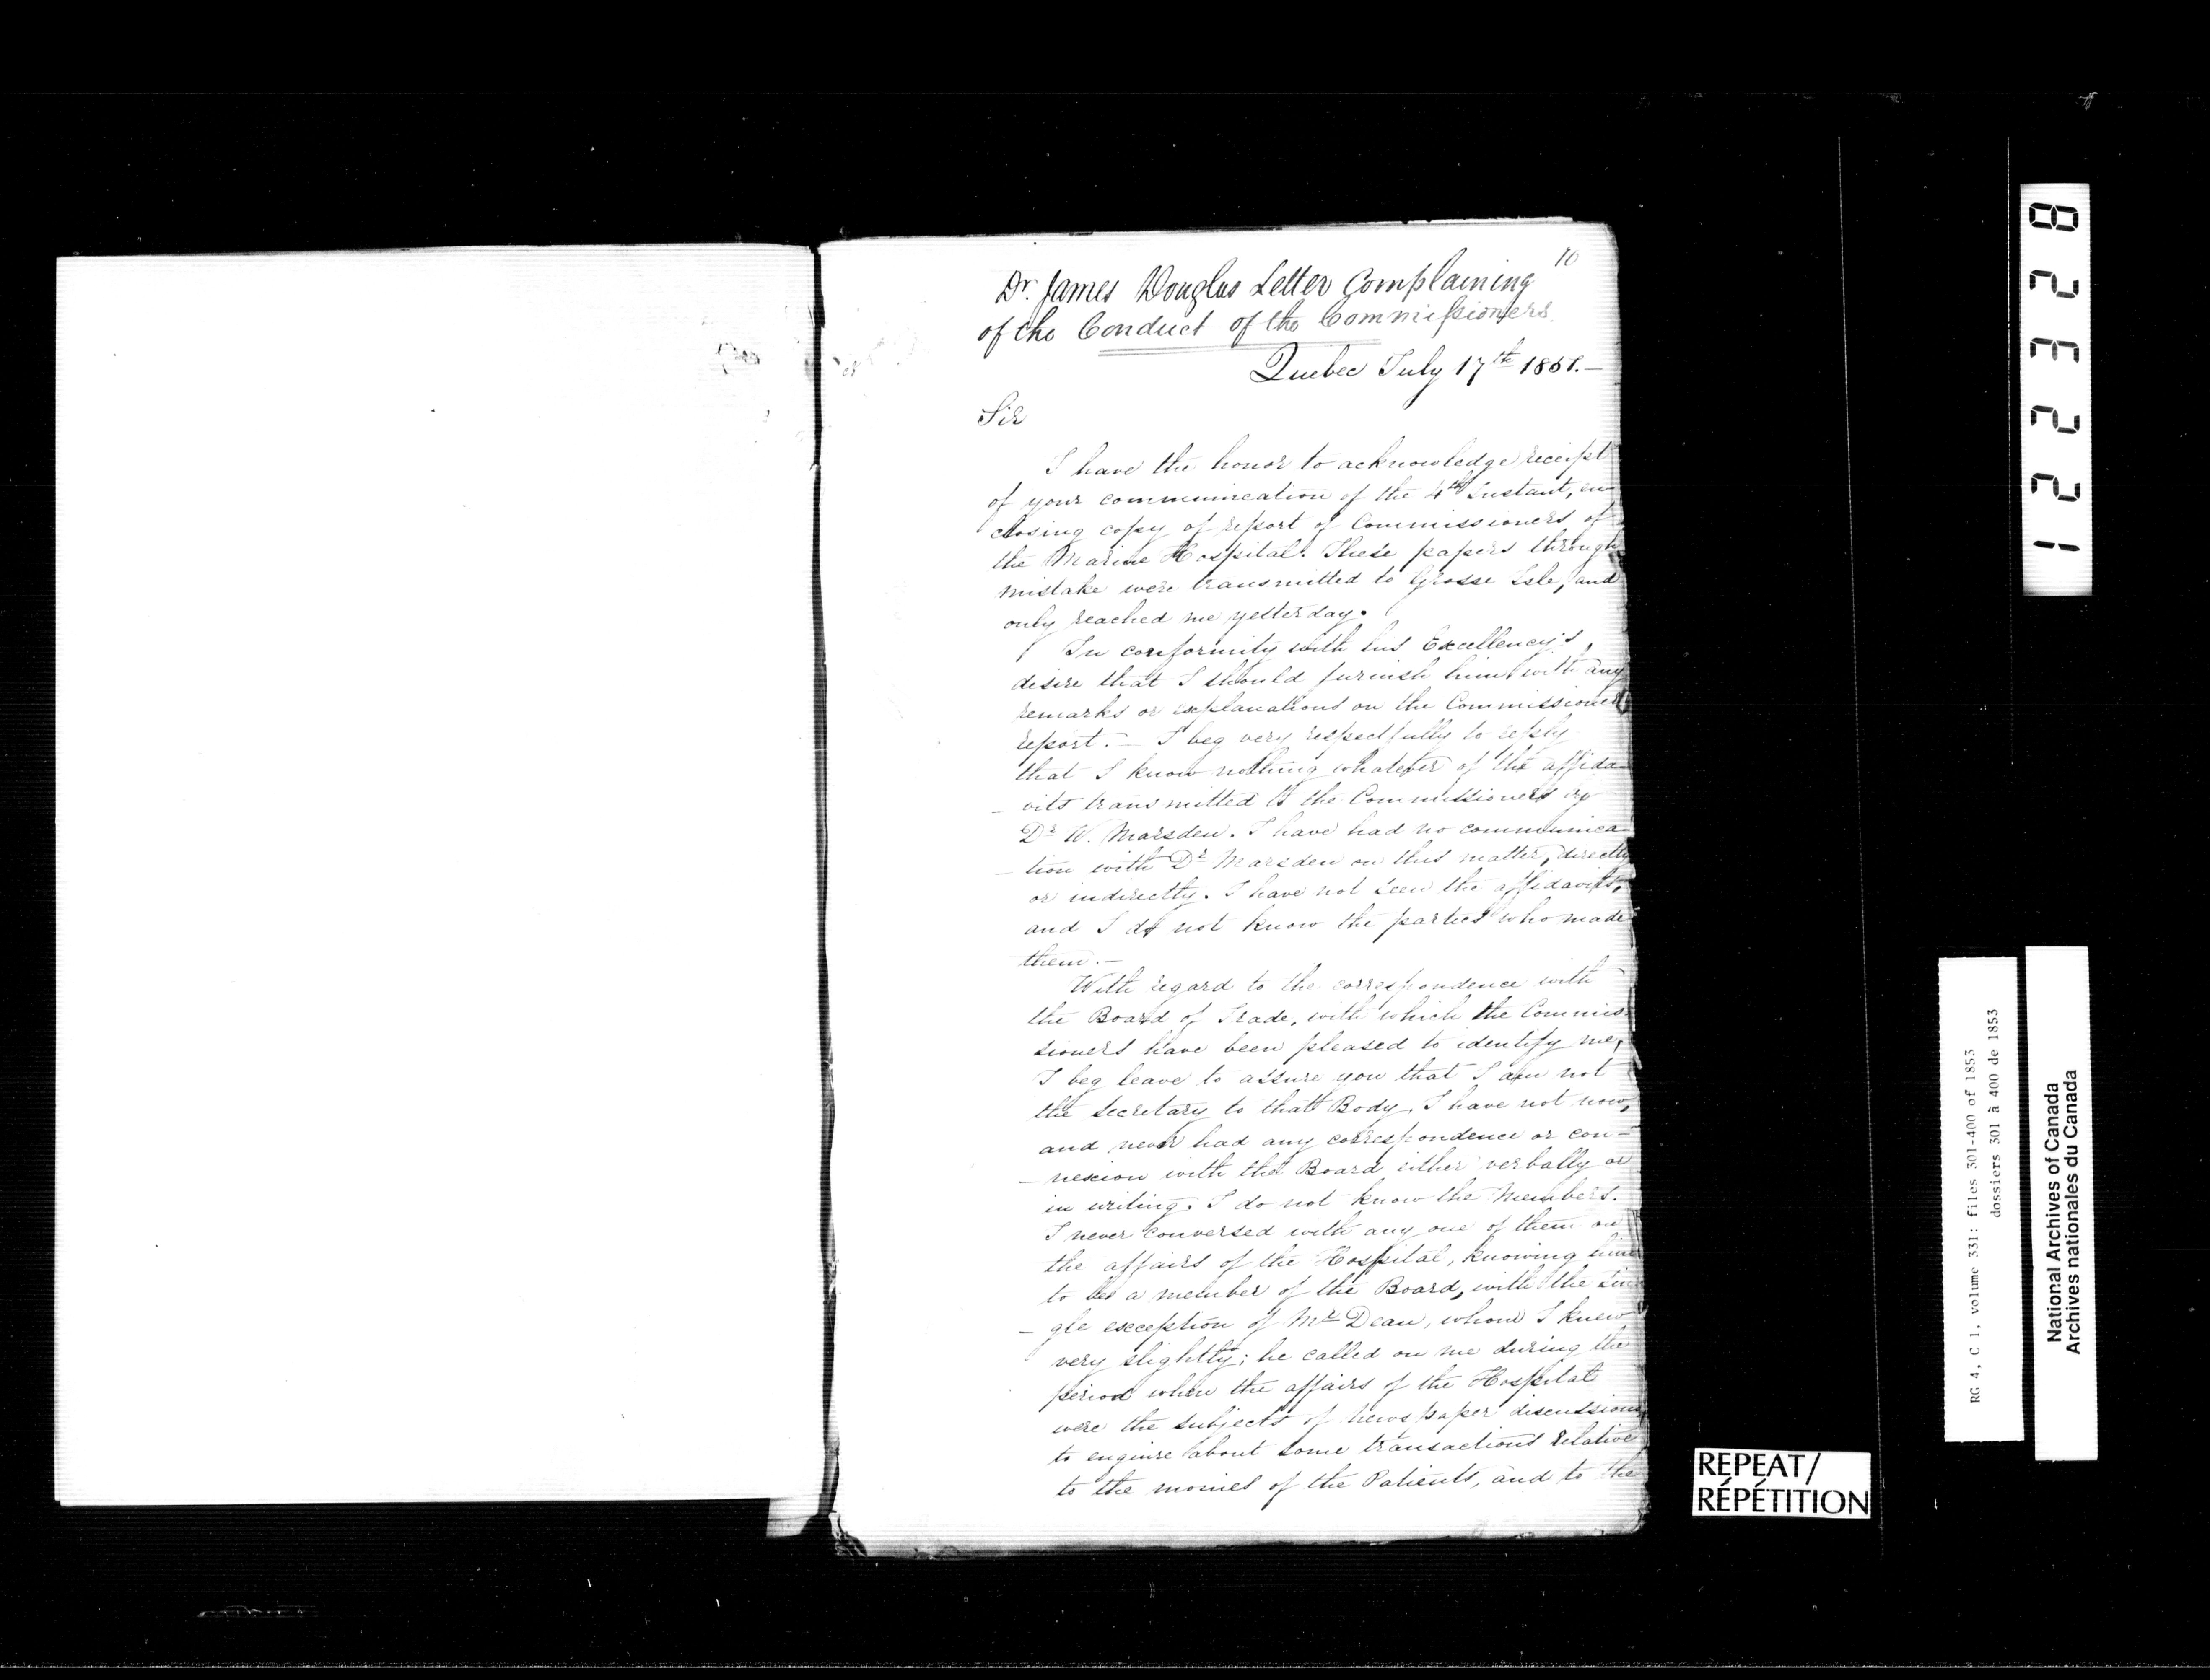 10
Dr. James Douglas Letter Complaining
of the Conduct of the Commissioners.
Quebec July 17th 1851.—
Sir
I have the honor to acknowledge receipt
of your communication of the 4th Instant, en-
closing copy of report of Commissioners of
the Marine Hospital. These papers through
mistake were transmitted to Grosse Isle, and
only reached me yesterday.
In conformity with his Excellency's
desire that I should furnish him with any
remarks or explanations on the Commissioners
report. — I beg very respectfully to reply
that I know nothing whatever of the affida-
-vits transmitted to the Commissioners by
Dr W. Marsden. I have had no communica-
-tion with Dr Marsden on this matter, directly
or indirectly. I have not seen the affidavits,
and I do not know the parties who made
them.—
With regard to the correspondence with
the Board of Trade, with which the Commis-
sioners have been pleased to identify me,
I beg leave to assure you that I am not
the Secretary to that Body, I have not now,
and never had any correspondence or con-
-nexion with the Board either verbally or
in writing. I do not know the Members.
I never conversed with any one of them on
the affairs of the Hospital, knowing him
to be a member of the Board, with the sin-
-gle exception of Mr Dean, whom I knew
very slightly; he called on me during the
period when the affairs of the Hospital
were the subjects of newspaper discussions,
to enquire about some transactions relative
to the monies of the Patients, and to the
12238
RG 4, C 1, volume 331: files 301-400 of 1853
dossiers 301 à 400 de 1853
National Archives of Canada
Archives nationales du Canada
REPEAT/
RÉPÉTITION